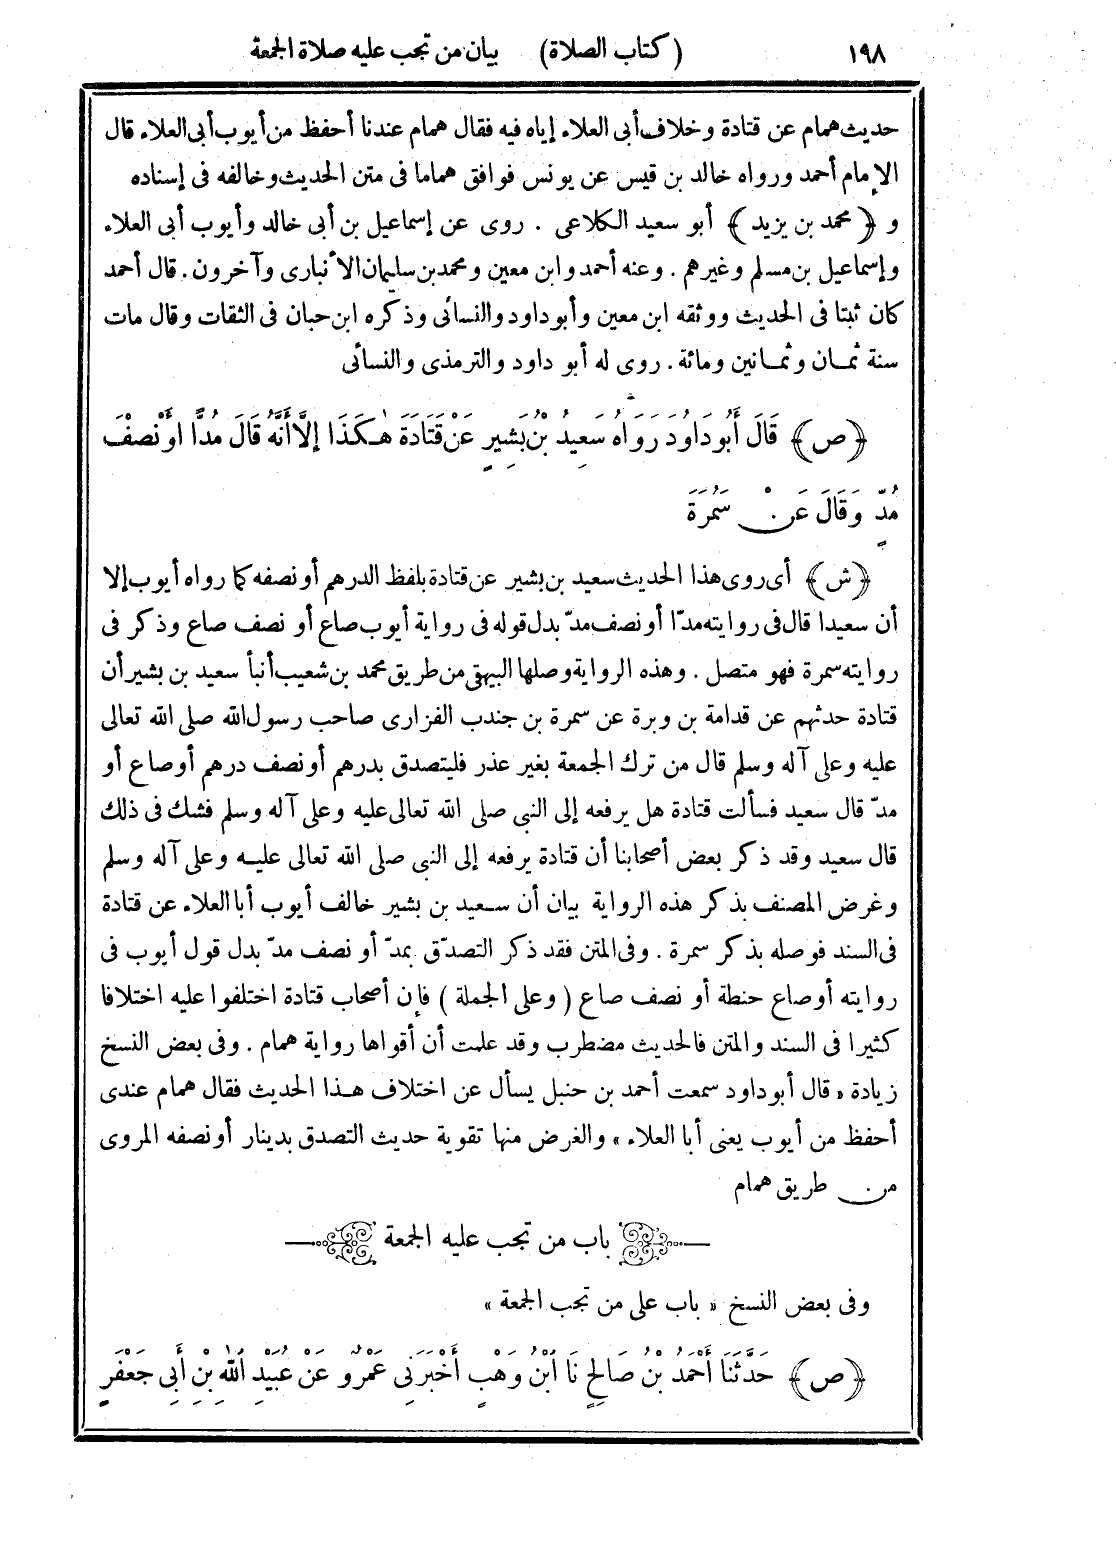 ١٩٨ (كتاب الصلاة) بيان من تجب عليه صلاة الجمعة
حديث همام عن قتادة وخلاف أبى العلاء إياه فيه فقال همام عندنا أحفظ من أيوب أبى العلاء قال
الإمام أحمد ورواه خالد بن قيس عن يونس فوافق هماما فى متن الحديث وخالفه فى إسناده
و ﴿محمد بن يزيد﴾ أبو سعيد الكلاعى . روى عن إسماعيل بن أبى خالد وأيوب أبى العلاء
وإسماعيل بن مسلم وغيرهم . وعنه أحمد وابن معين ومحمد بن سليمان الأنبارى وآخرون . قال أحمد
كان ثبتا فى الحديث ووثقه ابن معين وأبو داود والنسائى وذكره ابن حبان فى الثقات وقال مات
سنة ثمـان وثمـانين ومائة . روى له أبو داود والترمذى والنسائى
﴿ص﴾ قَالَ أَبُو دَاوُدَ رَوَاهُ سَعِيدُ بْنُ بَشِيرٍ عَنْ قَتَادَةَ هٰـكَذَا إِلَّا أَنَّهُ قَالَ مُدًّا أَوْ نِصْفَ
مُدٍّ وَقَالَ عَنْ سَمُرَةَ
﴿ش﴾ أى روى هذا الحديث سعيد بن بشير عن قتادة بلفظ الدرهم أو نصفه كما رواه أيوب إلا
أن سعيدا قال فى روايته مدّا أو نصف مدّ بدل قوله فى رواية أيوب صاع أو نصف صاع وذكر فى
روايته سمرة فهو متصل . وهذه الرواية وصلها البيهقى من طريق محمد بن شعيب أنبأ سعيد بن بشير أن
قتادة حدثهم عن قدامة بن وبرة عن سمرة بن جندب الفزارى صاحب رسول الله صلى الله تعالى
عليه وعلى آله وسلم قال من ترك الجمعة بغير عذر فليتصدق بدرهم أو نصف درهم أو صاع أو
مدّ قال سعيد فسألت قتادة هل يرفعه إلى النبى صلى الله تعالى عليه وعلى آله وسلم فشك فى ذلك
قال سعيد وقد ذكر بعض أصحابنا أن قتادة يرفعه إلى النبى صلى الله تعالى عليـه وعلى آله وسلم
وغرض المصنف بذكر هذه الرواية بيان أن سـعيد بن بشير خالف أيوب أبا العلاء عن قتادة
فى السند فوصله بذكر سمرة . وفى المتن فقد ذكر التصدّق بمدّ أو نصف مدّ بدل قول أيوب فى
روايته أو صاع حنطة أو نصف صاع (وعلى الجملة) فإن أصحاب قتادة اختلفوا عليه اختلافا
كثيرا فى السند والمتن فالحديث مضطرب وقد علمت أن أقواها رواية همام . وفى بعض النسخ
زيادة « قال أبو داود سمعت أحمد بن حنبل يسأل عن اختلاف هـذا الحديث فقال همام عندى
أحفظ من أيوب يعنى أبا العلاء » والغرض منها تقوية حديث التصدق بدينار أو نصفه المروى
من طريق همام
باب من تجب عليه الجمعة
وفى بعض النسخ « باب على من تجب الجمعة »
﴿ص﴾ حَدَّثَنَا أَحْمَدُ بْنُ صَالِحٍ نَا ابْنُ وَهْبٍ أَخْبَرَنِى عَمْرٌو عَنْ عُبَيْدِ اللهِ بْنِ أَبِى جَعْفَرٍ